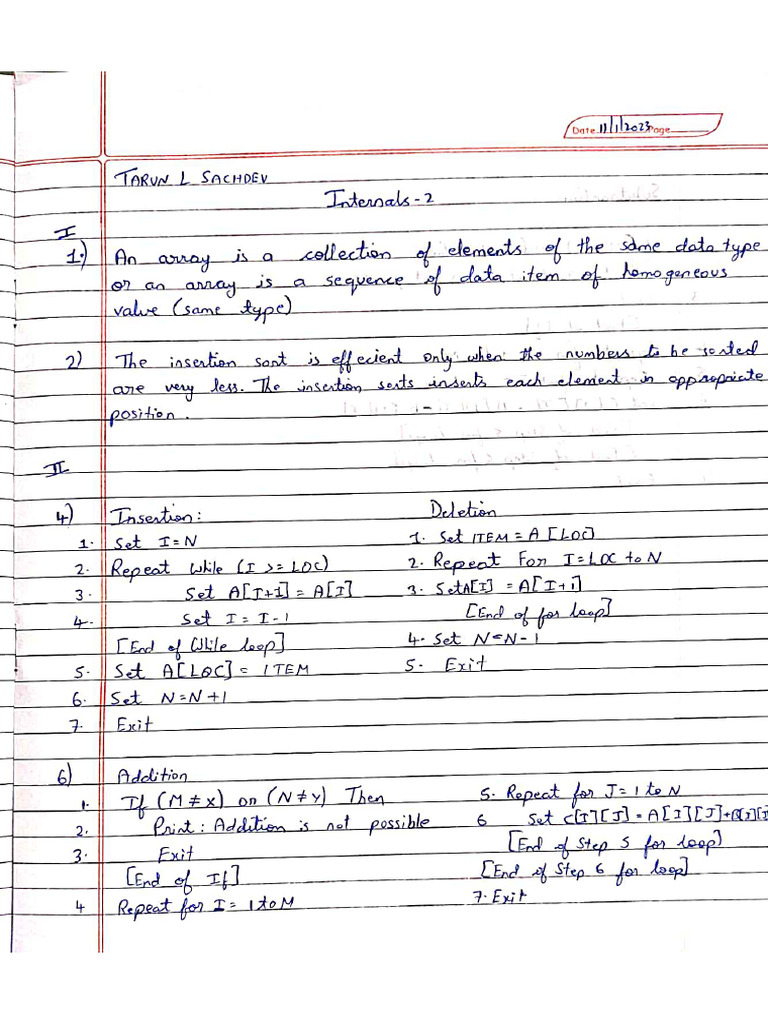 Date 11/1/2023 Page
TARUN L SACHDEV
Internals-2
I
1.) An array is a collection of elements of the same data type
or an array is a sequence of data item of homogeneous
value (same type)
2) The insertion sort is effecient only when the numbers to be sorted
are very less. The insertion sorts inserts each element in appropriate
position.
II
4) Insertion:
1. Set I=N
2. Repeat While (I >= LOC)
3. Set A[I+1] = A[I]
4. Set I = I-1
[End of While loop]
5. Set A[LOC] = ITEM
6. Set N=N+1
7. Exit
Deletion
1. Set ITEM = A[LOC]
2. Repeat For I=LOC to N
3. Set A[I] = A[I+1]
[End of for loop]
4. Set N=N-1
5. Exit
6) Addition
1. If (M ≠ X) or (N ≠ Y) Then
2. Print: Addition is not possible
3. Exit
[End of If]
4 Repeat for I = 1 to M
5. Repeat for J = 1 to N
6 Set C[I][J] = A[I][J]+B[I][J
[End of Step 5 for loop]
[End of Step 6 for loop]
7. Exit